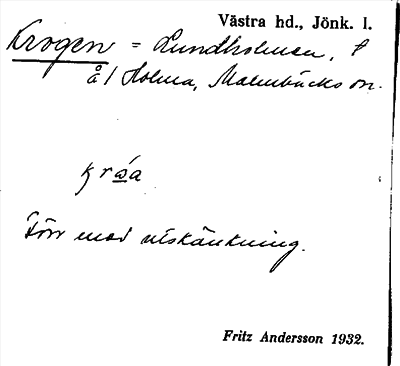 Västra hd., Jönk. l.
Krogen = Lundholmen, t
å / Holma, Malmbäcks sn.
kråa
Förr med utskänkning.
Fritz Andersson 1932.